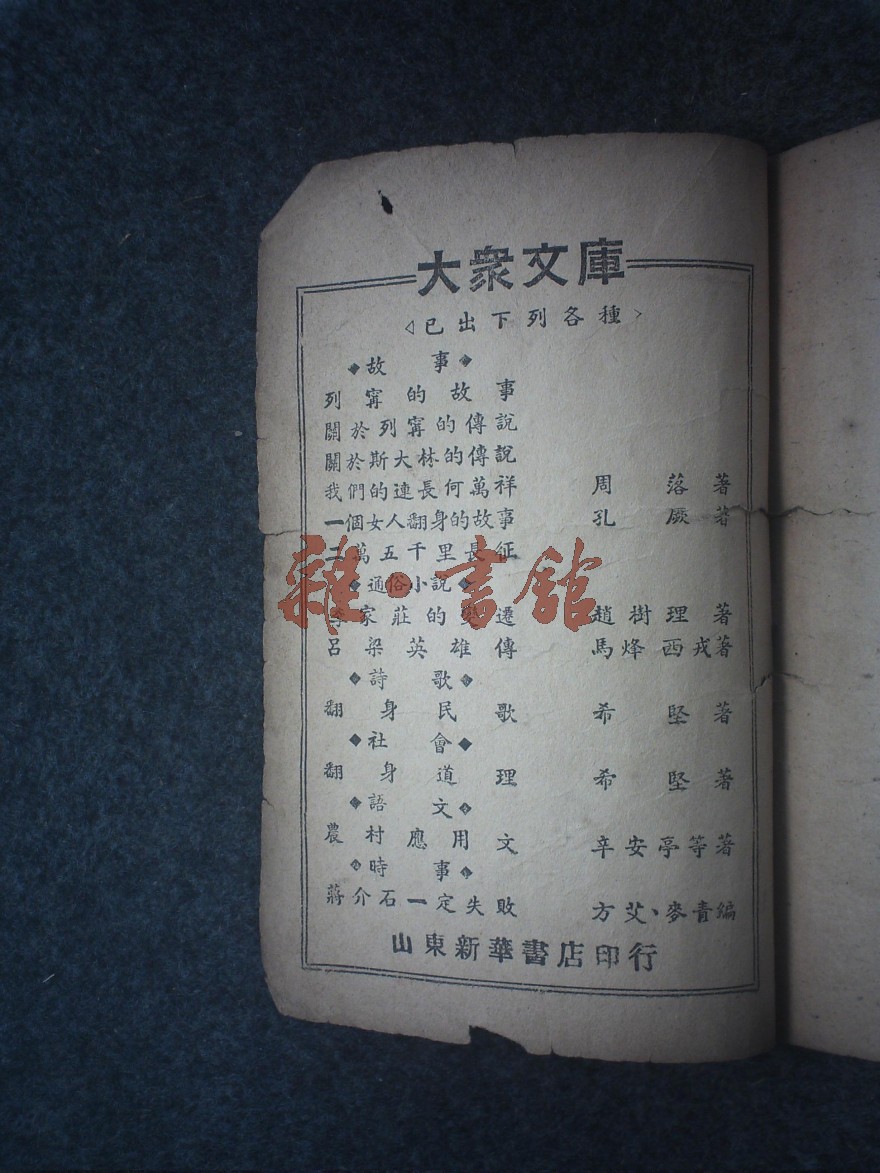 大衆文庫
<已出下列各種>
◆故事◆
列寗的故事
關於列寗的傳說
關於斯大林的傳說
我們的連長何萬祥 周落著
一個女人翻身的故事 孔厥著
二萬五千里長征
◆通俗小說◆
李家莊的變遷 趙樹理著
呂梁英雄傳 馬烽西戎著
◆詩歌◆
翻身民歌 希堅著
◆社會◆
翻身道理 希堅著
◆語文◆
農村應用文 辛安亭等著
◆時事◆
蔣介石一定失敗 方艾、麥青編
山東新華書店印行
雜·書館